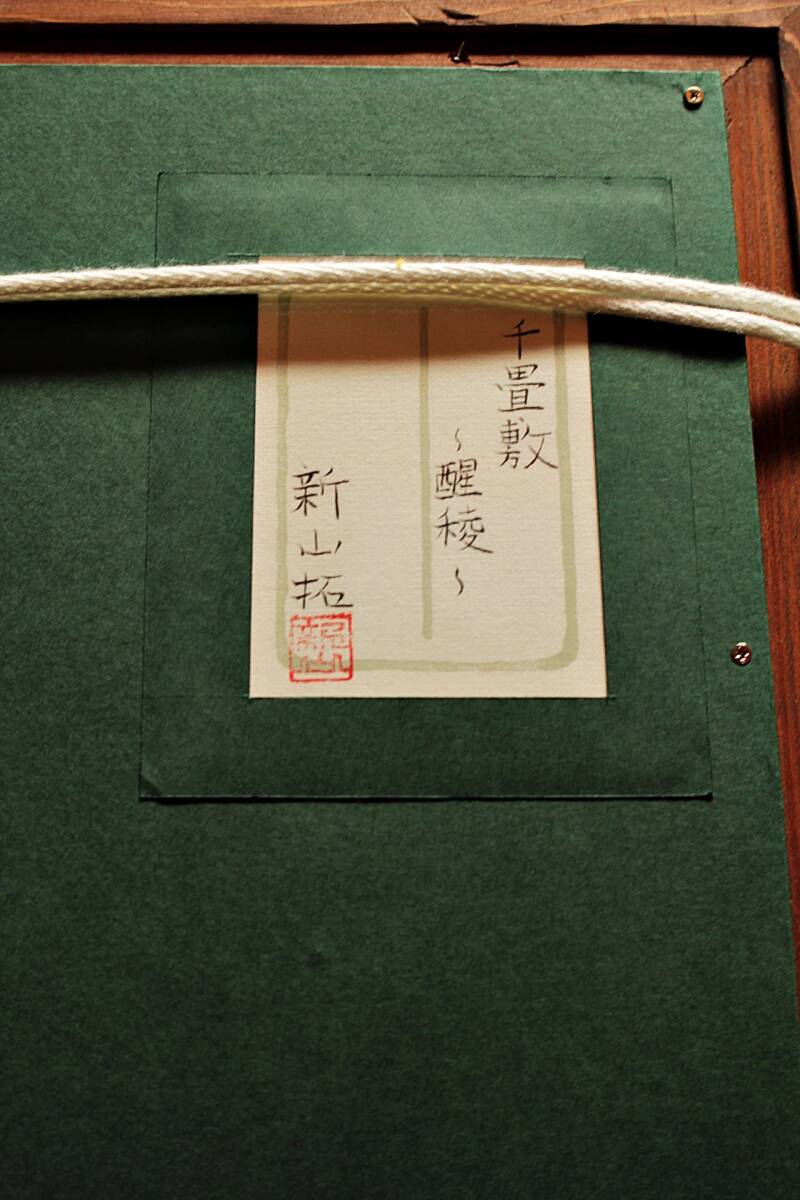 千畳敷
～醒稜～
新山拓